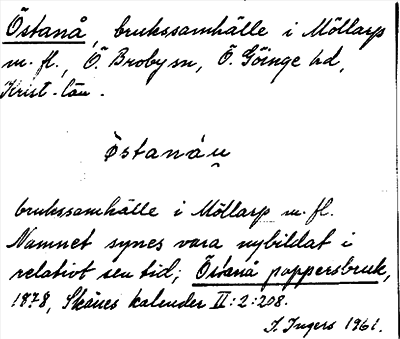 Östanå, brukssamhälle i Möllarp
m. fl., Ö. Broby sn, Ö. Göinge hd,
Krist. län.
östanåu̯
brukssamhälle i Möllarp m. fl.
Namnet synes vara nybildat i
relativt sen tid; Östanå pappersbruk,
1878, Skånes kalender II:2:208.
I. Ingers 1961.